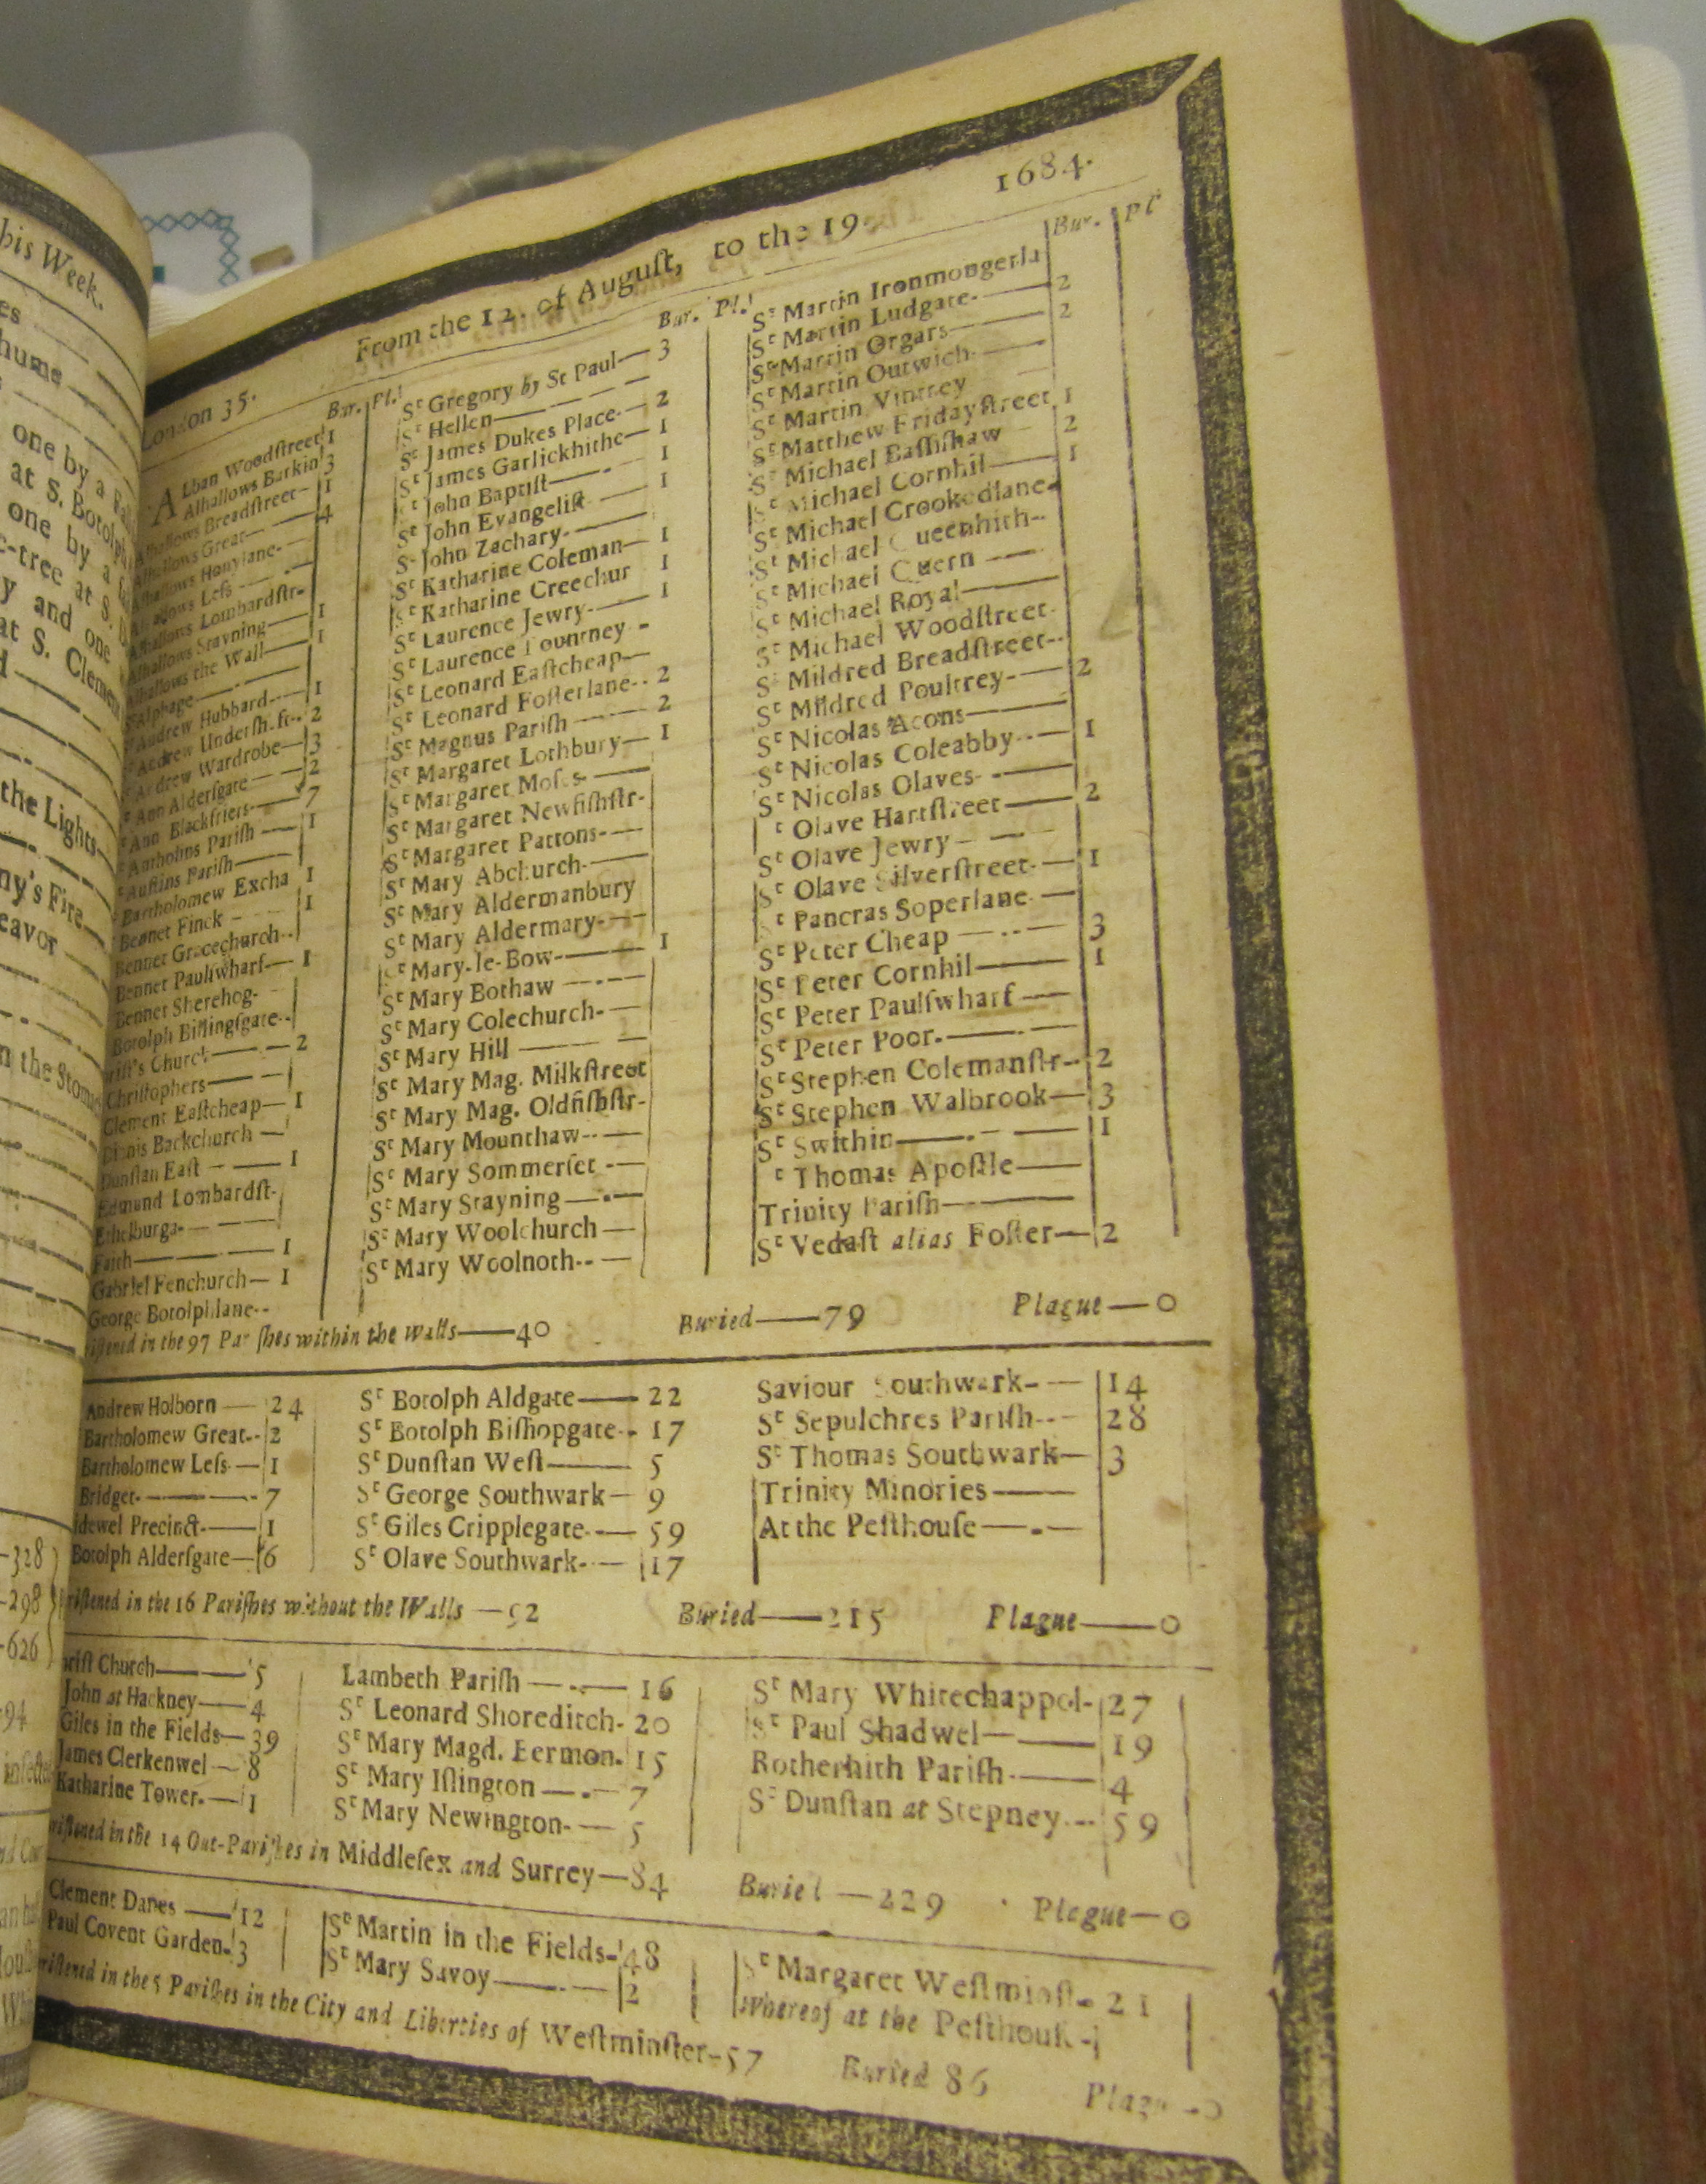 his Week.
one by a
at S. Botolph
one by a
c-tree at S.
y and one
at S. Clement
the Lights
ny's Fire
eavor
n the Stomach
-328
-298
-626
-94
From the 12. of August, to the 19. 1684.
London 35.
Bur. Pl.
ALban Woodſtreet 1
Alhallows Barkin 3
Alhallows Breadſtreet- 1
Alhallows Great— 4
Alhallows Honylane-
Alhallows Leſs
Alhallows Lombardſtr-
Alhallows Stayning— 1
Alhallows the Wall— 1
Alphage—
Andrew Hubbard— 1
Andrew Underſh.ft-- 2
Andrew Wardrobe— 3
Ann Alderſgate— 2
Ann Blackfriers— 7
Antholins Pariſh— 1
Auſtins Pariſh—
Bartholomew Excha 1
Bennet Finck - 1
Bennet Gracechurch-
Bennet Paulſwharf— 1
Bennet Sherehog-
Botolph Billingſgate-
riſt's Church— 2
Chriſtophers—
Clement Eaſtcheap— 1
Dionis Backchurch—
Dunſtan Eaſt— 1
Edmund Lombardſt-
Ethelburga-
Faith— 1
Gabriel Fenchurch— 1
George Botolphlane--
Bur. Pl.
Sᵗ Gregory by St Paul— 3
Sᵗ Hellen—
Sᵗ James Dukes Place— 2
Sᵗ James Garlickhithe— 1
Sᵗ John Baptiſt— 1
Sᵗ John Evangeliſt— 1
Sᵗ John Zachary—
Sᵗ Katharine Coleman— 1
Sᵗ Katharine Creechur 1
Sᵗ Laurence Jewry— 1
Sᵗ Laurence Pountney -
Sᵗ Leonard Eaſtcheap—
Sᵗ Leonard Foſterlane-- 2
Sᵗ Magnus Pariſh— 2
Sᵗ Margaret Lothbury— 1
Sᵗ Margaret Moſes—
Sᵗ Margaret Newfiſhſtr-
Sᵗ Margaret Pattons—
Sᵗ Mary Abchurch—
Sᵗ Mary Aldermanbury
Sᵗ Mary Aldermary—
Sᵗ Mary-le-Bow— 1
Sᵗ Mary Bothaw—
Sᵗ Mary Colechurch—
Sᵗ Mary Hill—
Sᵗ Mary Mag. Milkſtreet
Sᵗ Mary Mag. Oldfiſhſtr-
Sᵗ Mary Mounthaw—
Sᵗ Mary Sommerſet—
Sᵗ Mary Stayning—
Sᵗ Mary Woolchurch—
Sᵗ Mary Woolnoth—
Bur. Pl
Sᵗ Martin Ironmongerla
Sᵗ Martin Ludgate— 2
Sᵗ Martin Orgars— 2
Sᵗ Martin Outwich—
Sᵗ Martin Vintrey
Sᵗ Matthew Fridayſtreet 1
Sᵗ Michael Baſſiſhaw 2
Sᵗ Michael Cornhil— 1
Sᵗ Michael Crookedlane
Sᵗ Michael Queenhith-
Sᵗ Michael Quern—
Sᵗ Michael Royal—
Sᵗ Michael Woodſtreet-
Sᵗ Mildred Breadſtreet--
Sᵗ Mildred Poultrey— 2
Sᵗ Nicolas Acons—
Sᵗ Nicolas Coleabby— 1
Sᵗ Nicolas Olaves—
Sᵗ Olave Hartſtreet— 2
Sᵗ Olave Jewry—
Sᵗ Olave Silverſtreet— 1
Sᵗ Pancras Soperlane—
Sᵗ Peter Cheap— 3
Sᵗ Peter Cornhil— 1
Sᵗ Peter Paulſwharf—
Sᵗ Peter Poor—
Sᵗ Stephen Colemanſtr-- 2
Sᵗ Stephen Walbrook— 3
Sᵗ Swithin— 1
Sᵗ Thomas Apoſtle—
Trinity Pariſh—
Sᵗ Vedaſt alias Foſter— 2
iſtened in the 97 Pariſhes within the Walls—40 Buried—79 Plague—0
Andrew Holborn— 24
Bartholomew Great-- 2
Bartholomew Leſs— 1
Bridget— 7
idewel Precinct— 1
Botolph Alderſgate— 6
Sᵗ Botolph Aldgate— 22
Sᵗ Botolph Biſhopgate-- 17
Sᵗ Dunſtan Weſt— 5
Sᵗ George Southwark— 9
Sᵗ Giles Cripplegate— 59
Sᵗ Olave Southwark— 17
Saviour Southwark— 14
Sᵗ Sepulchres Pariſh-- 28
Sᵗ Thomas Southwark— 3
Trinity Minories—
At the Peſthouſe—
riſtened in the 16 Pariſhes without the Walls—52 Buried—215 Plague—0
riſt Church— 5
John at Hackney— 4
Giles in the Fields— 39
James Clerkenwel— 8
Katharine Tower— 1
Lambeth Pariſh— 16
Sᵗ Leonard Shoreditch- 20
Sᵗ Mary Magd. Bermon. 15
Sᵗ Mary Iſlington— 7
Sᵗ Mary Newington— 5
Sᵗ Mary Whitechappel- 27
Sᵗ Paul Shadwel— 19
Rotherhith Pariſh— 4
Sᵗ Dunſtan at Stepney— 59
riſtened in the 14 Out-Pariſhes in Middleſex and Surrey—84 Buried—229 Plague—0
Clement Danes— 12
Paul Covent Garden- 3
Sᵗ Martin in the Fields- 48
Sᵗ Mary Savoy— 2
Sᵗ Margaret Weſtminſt- 21
Whereof at the Peſthouſe-
riſtened in the 5 Pariſhes in the City and Liberties of Weſtminſter-57 Buried 86 Plague-0